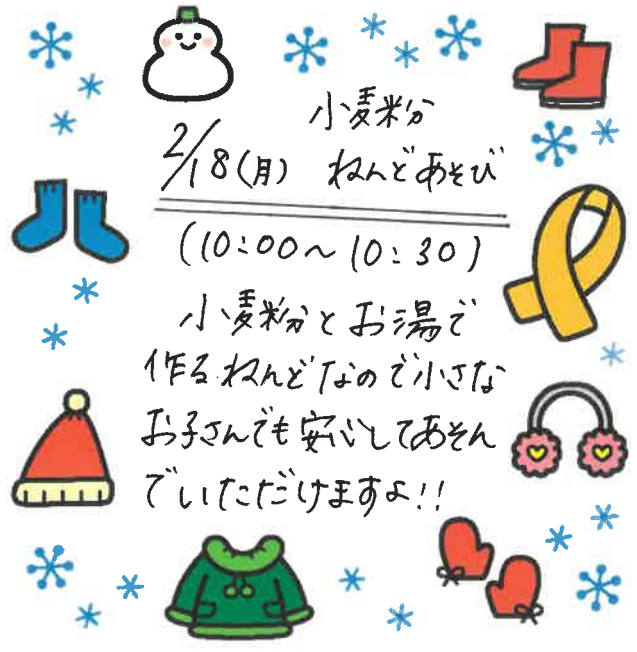 小麦粉
2/18(月) ねんどあそび
(10:00～10:30)
小麦粉とお湯で
作るねんどなので小さな
お子さんでも安心してあそん
でいただけますよ!!